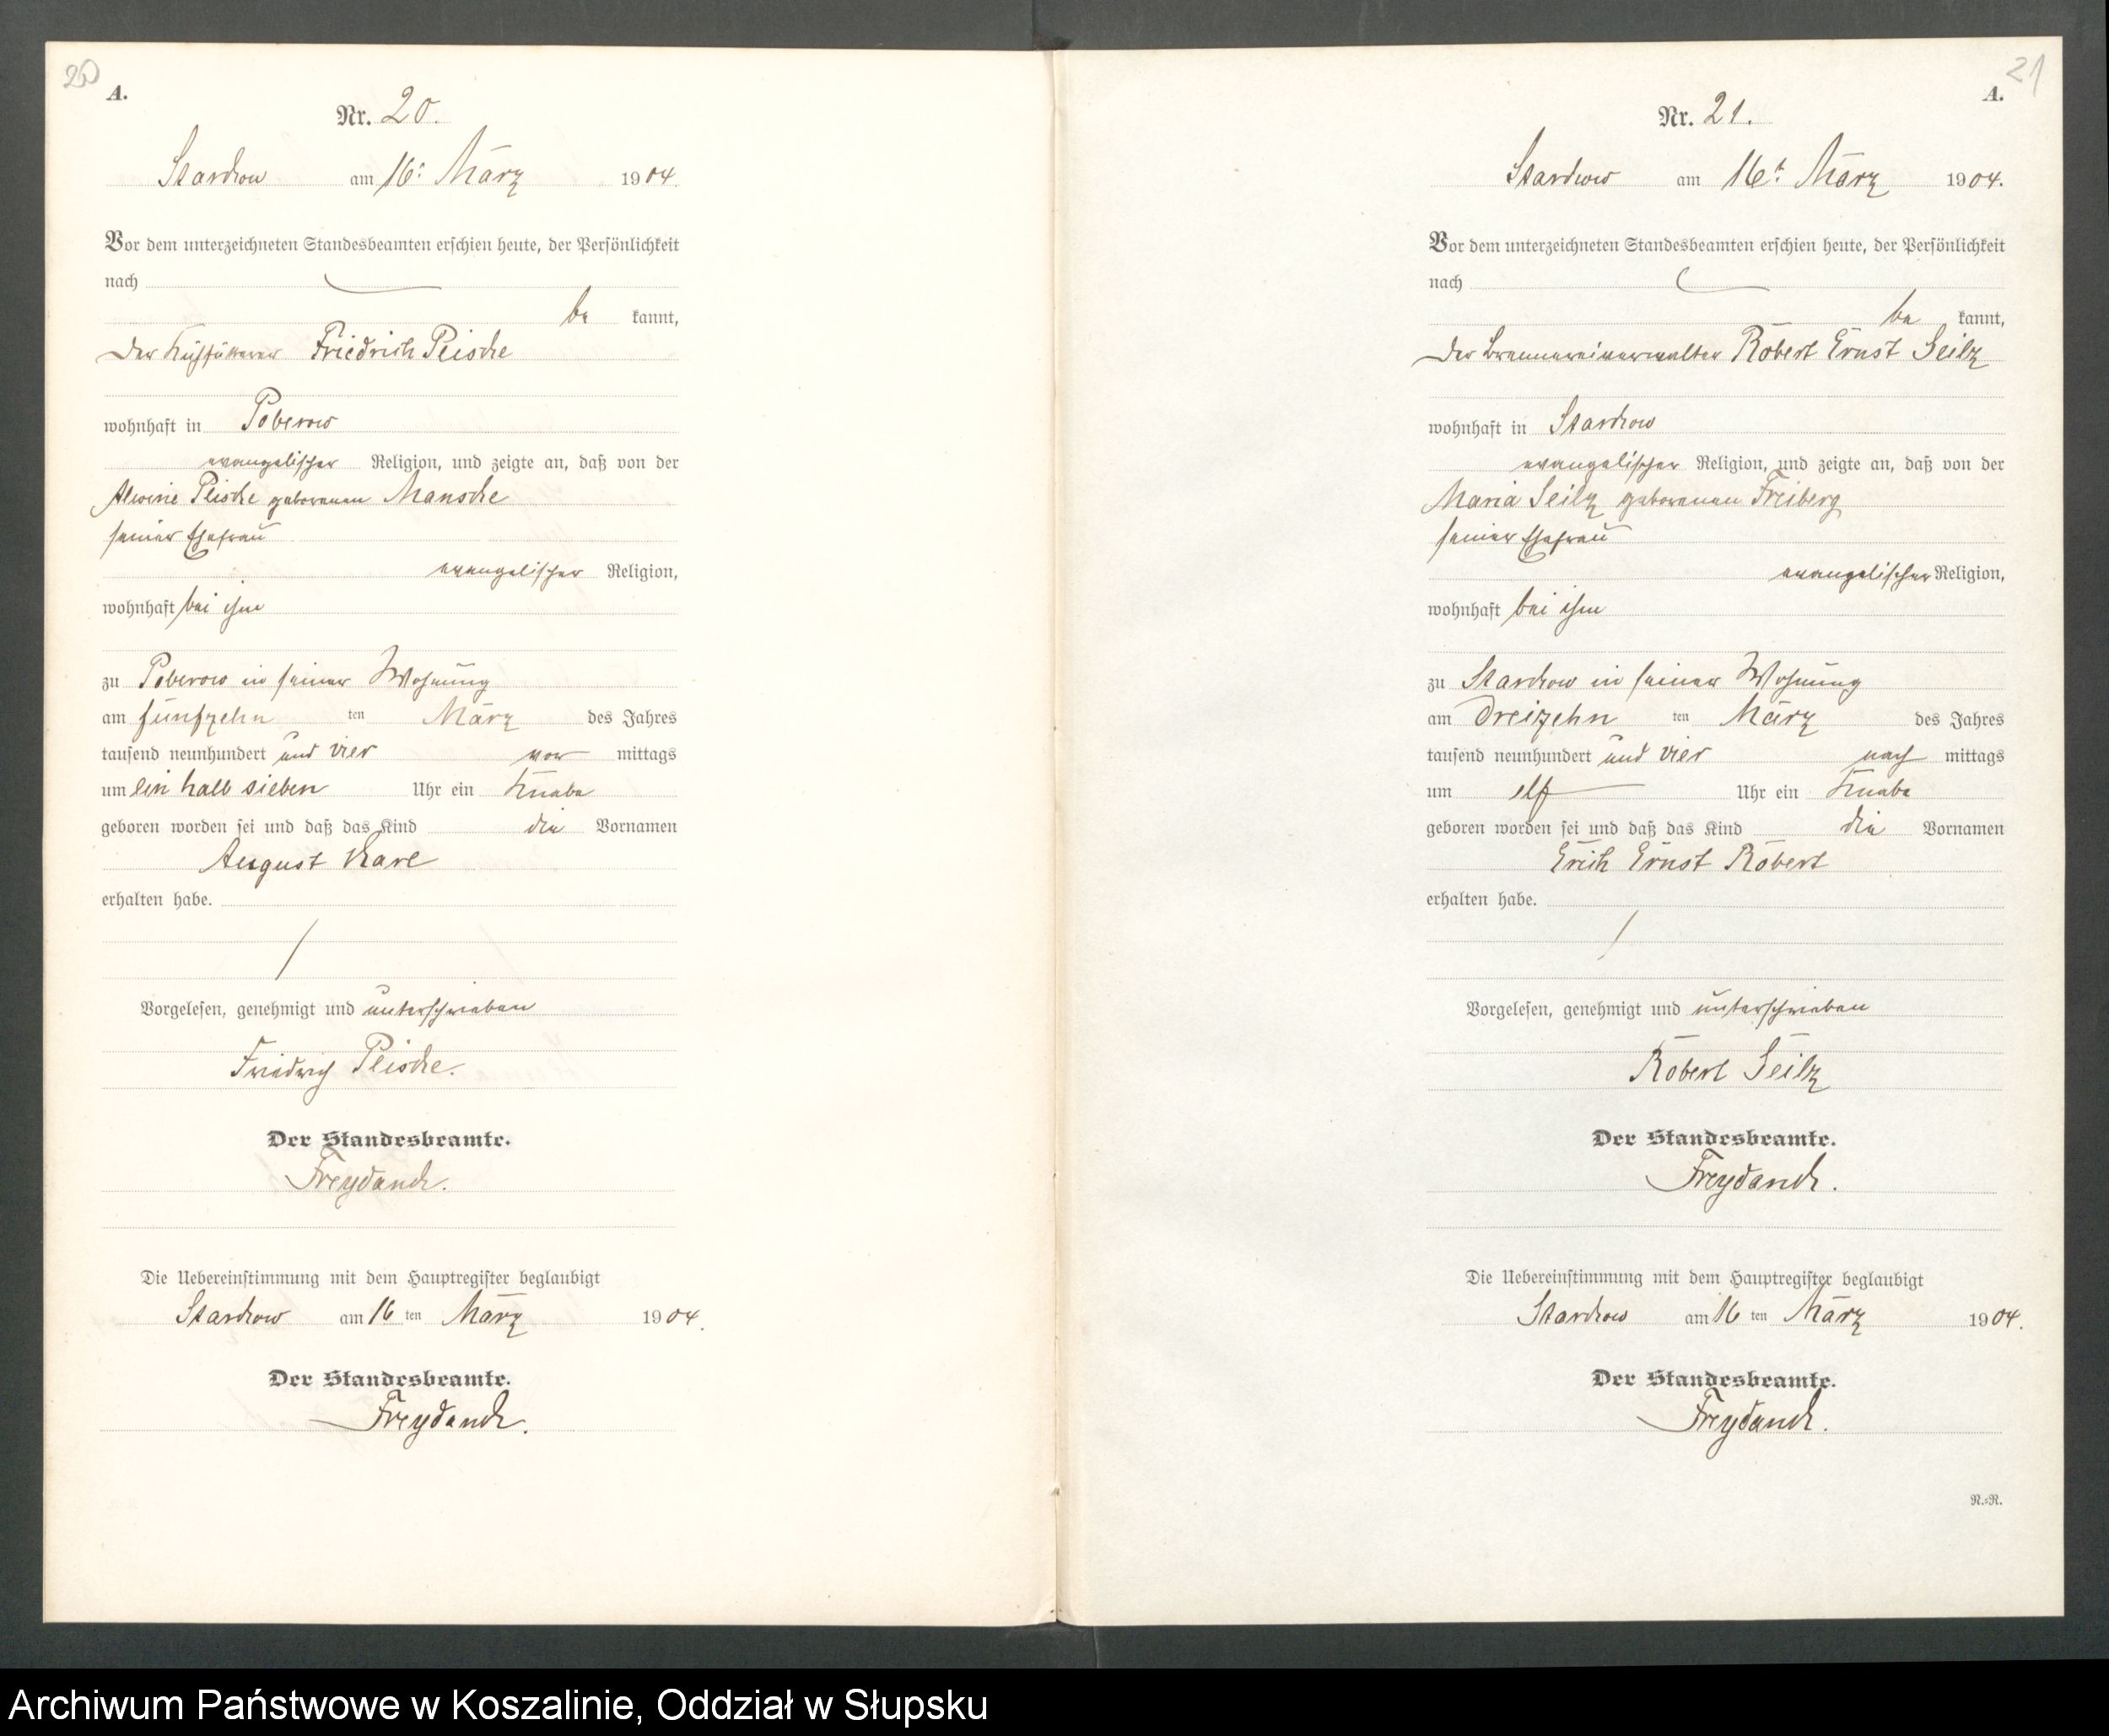 20
A.
Nr. 20.
Starckow am 16t. März 1904.
Vor dem unterzeichneten Standesbeamten erschien heute, der Persönlichkeit
nach
be kannt,
der Kuhfütterer Friedrich Peische
wohnhaft in Poberow
evangelischer Religion, und zeigte an, daß von der
Alwine Peische geborenen Manske
seiner Ehefrau
evangelischer Religion,
wohnhaft bei ihm
zu Poberow in seiner Wohnung
am fünfzehn ten März des Jahres
tausend neunhundert und vier vor mittags
um ein halb sieben Uhr ein Knabe
geboren worden sei und daß das Kind die Vornamen
August Karl
erhalten habe.
Vorgelesen, genehmigt und unterschrieben
Friedrich Peische.
Der Standesbeamte.
Freydanck.
Die Uebereinstimmung mit dem Hauptregister beglaubigt
Starckow am 16 ten März 1904.
Der Standesbeamte.
Freydanck.
21
A.
Nr. 21.
Starckow am 16t. März 1904.
Vor dem unterzeichneten Standesbeamten erschien heute, der Persönlichkeit
nach
be kannt,
der Brennereiverwalter Robert Ernst Seilz
wohnhaft in Starckow
evangelischer Religion, und zeigte an, daß von der
Maria Seilz geborenen Freiberg
seiner Ehefrau
evangelischer Religion,
wohnhaft bei ihm
zu Starckow in seiner Wohnung
am dreizehn ten März des Jahres
tausend neunhundert und vier nach mittags
um elf Uhr ein Knabe
geboren worden sei und daß das Kind die Vornamen
Erich Ernst Robert
erhalten habe.
Vorgelesen, genehmigt und unterschrieben
Robert Seilz
Der Standesbeamte.
Freydanck.
Die Uebereinstimmung mit dem Hauptregister beglaubigt
Starckow am 16 ten März 1904.
Der Standesbeamte.
Freydanck.
R.=R.
Archiwum Państwowe w Koszalinie, Oddział w Słupsku